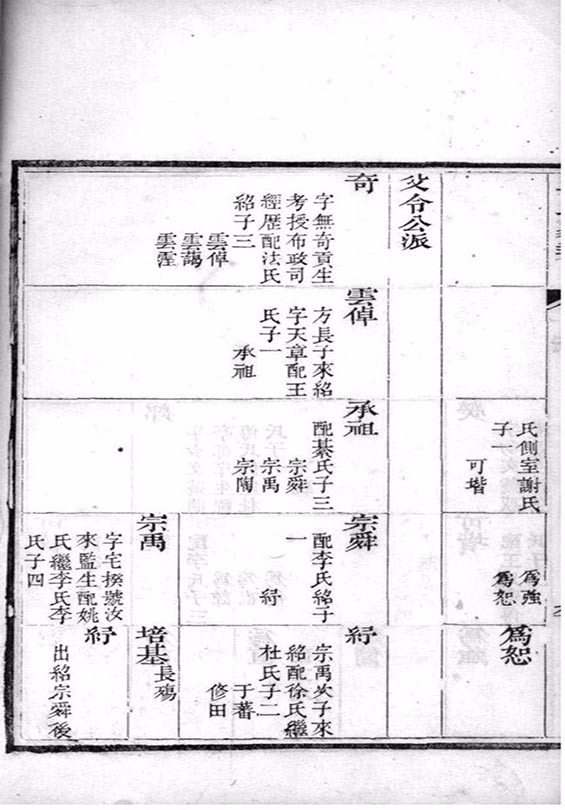 氏側室謝氏
子一
可堦
為強
為恕
為恕
父令公派
奇
字無奇貢生
考授布政司
經歷配法氏
紹子三
雲倬
雲藹
雲霔
雲倬
方長子來紹
字天章配王
氏子一
承祖
承祖
配綦氏子三
宗舜
宗禹
宗陶
宗舜
配李氏紹子
一
紆
紆
宗禹次子來
紹配徐氏繼
杜氏子二
于蕃
修田
宗禹
字宅揆號汝
來監生配姚
氏繼李氏李
氏子四
培基
長殤
紆
出紹宗舜後